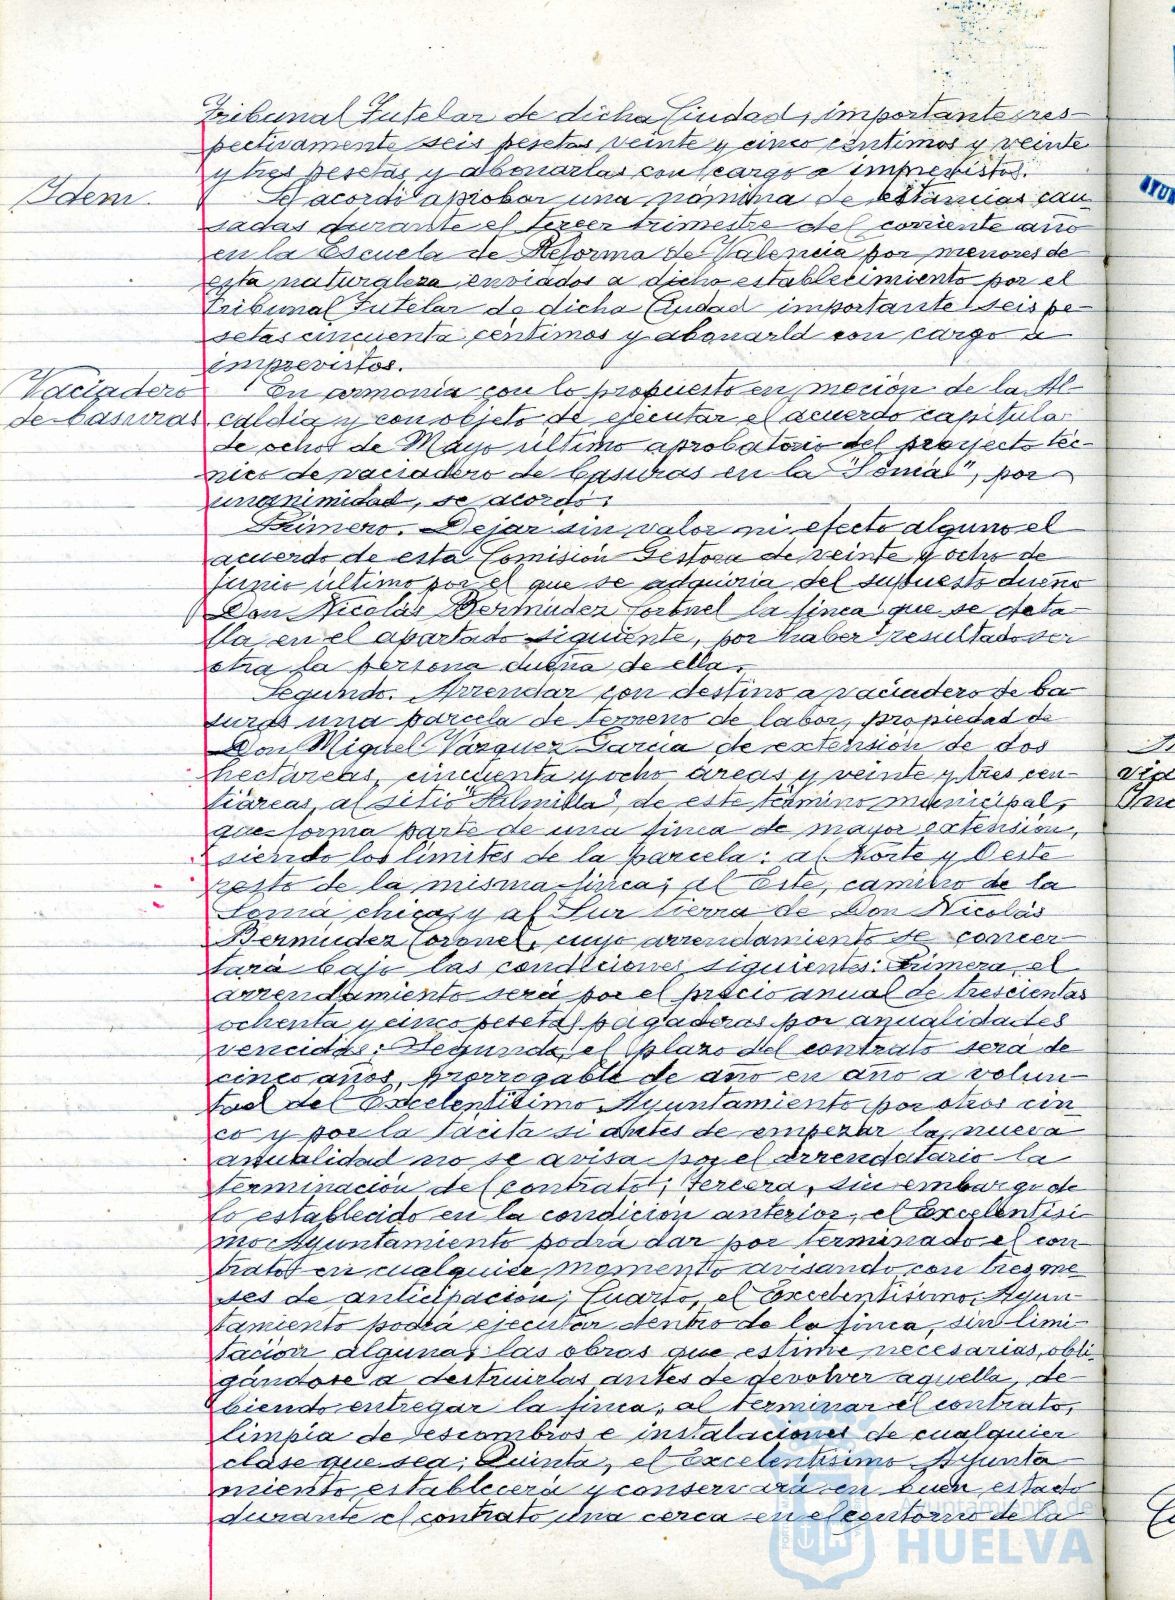 Tribunal Tutelar de dicha Ciudad, importantes res-
pectivamente seis pesetas veinte y cinco céntimos y veinte
y tres pesetas y abonarlas con cargo a imprevistos.
Idem.
Se acordó aprobar una nómina de estancias cau-
sadas durante el tercer trimestre del corriente año
en la Escuela de Reforma de Valencia por menores de
esta naturaleza enviados a dicho establecimiento por el
Tribunal Tutelar de dicha Ciudad importante seis pe-
setas cincuenta céntimos y abonarla con cargo a
imprevistos.
Vaciadero
de basuras.
En armonía con lo propuesto en moción de la Al-
caldía y con objeto de ejecutar el acuerdo capitular
de ocho de Mayo último aprobatorio del proyecto téc-
nico de vaciadero de basuras en la "Loma", por
unanimidad, se acordó:
Primero. Dejar sin valor ni efecto alguno el
acuerdo de esta Comisión Gestora de veinte y ocho de
Junio último por el que se adquiria del supuesto dueño
Don Nicolás Bermudez Coronel la finca que se deta-
lla en el apartado siguiente, por haber resultado ser
otra la persona dueña de ella.
Segundo. Arrendar con destino a vaciadero de ba-
suras una parcela de terreno de labor, propiedad de
Don Miguel Vázquez García de extensión de dos
hectáreas, cincuenta y ocho áreas y veinte y tres cen-
tiáreas, al sitio "Palmilla", de este término municipal,
que forma parte de una finca de mayor extensión,
siendo los límites de la parcela: al Norte y Oeste
resto de la misma finca; al Este, camino de la
Loma chica; y al Sur tierra de Don Nicolás
Bermudez Coronel, cuyo arrendamiento se concer-
tará bajo las condiciones siguientes: Primera, el
arrendamiento será por el precio anual de trescientas
ochenta y cinco pesetas pagaderas por anualidades
vencidas; Segunda, el plazo del contrato será de
cinco años, prorrogable de año en año a volun-
tad del Excelentísimo Ayuntamiento por otros cin-
co y por la tácita si antes de empezar la nueva
anualidad no se avisa por el arrendatario la
terminación del contrato; Tercera, sin embargo de
lo establecido en la condición anterior, el Excelentísi-
mo Ayuntamiento podrá dar por terminado el con-
trato en cualquier momento avisando con tres me-
ses de anticipación; Cuarto, el Excelentísimo Ayun-
tamiento podrá ejecutar dentro de la finca, sin limi-
tación alguna, las obras que estime necesarias, obli-
gándose a destruirlas antes de devolver aquella, de-
biendo entregar la finca, al terminar el contrato,
limpia de escombros e instalaciones de cualquier
clase que sea; Quinta, el Excelentísimo Ayunta-
miento establecerá y conservará en buen estado
durante el contrato una cerca en el contorno de la
Ayuntamiento de
HUELVA